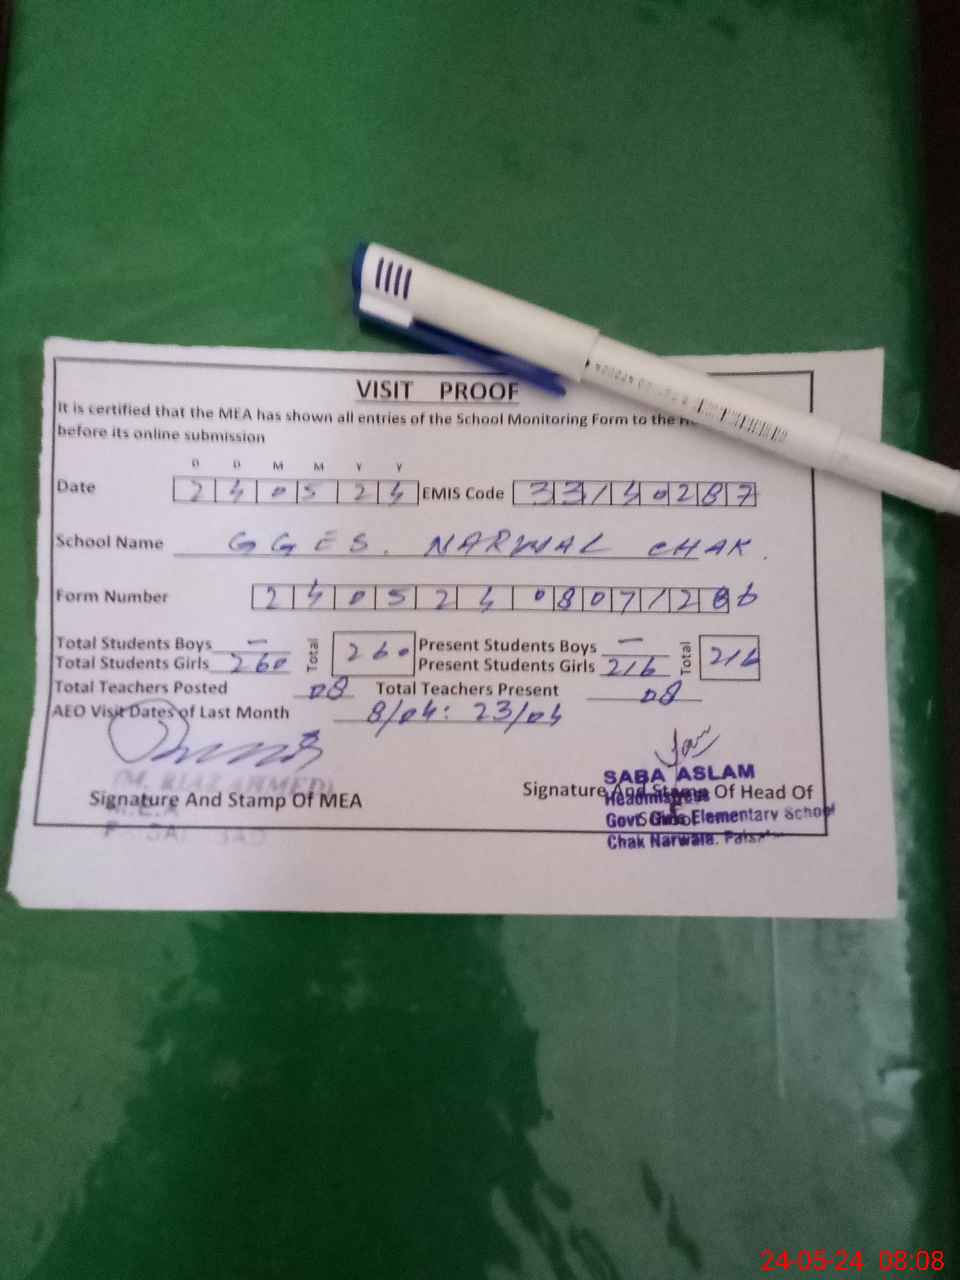 VISIT PROOF
It is certified that the MEA has shown all entries of the School Monitoring Form to the
before its online submission
D D M M Y Y
Date 24 05 24 EMIS Code 33140287
School Name GGES. NARWAL CHAK.
Form Number 240524 0807/286
Total Students Boys — Total 260 Present Students Boys — Total 216
Total Students Girls 260 Present Students Girls 216
Total Teachers Posted 08 Total Teachers Present 08
AEO Visit Dates of Last Month 8/04: 23/04
(M. RIAZ AHMED)
Signature And Stamp Of MEA
M.E.A
SABA ASLAM
Signature And Stamp Of Head Of
Headmistress
School
Govt. Girls Elementary School
Chak Narwala.
24-05-24 08:08